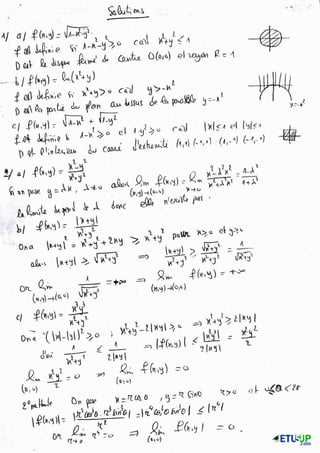 Solutions
1/ a/ f(x,y) = √(1-x²-y²)
f est définie si 1-x²-y² ≥ 0 càd x²+y² ≤ 1
D est le disque fermé de centre O(0,0) et rayon R = 1
b/ f(x,y) = ln(x²+y)
f est définie si x²+y > 0 càd y > -x²
D est la partie du plan au dessus de la parabole y = -x²
y = -x²
c/ f(x,y) = √(1-x²) + √(1-y²)
f est définie si 1-x² ≥ 0 et 1-y² ≥ 0 càd |x| ≤ 1 et |y| ≤ 1
D est l'intérieur du carré d'extrémités (1,1) (-1,1) (1,-1) (-1,-1)
2/ a/ f(x,y) = (x²-y²)/(x²+y²)
Si on pose y = λx, λ≠0 alors lim (x,y)→(0,0) f(x,y) = lim x→0 (x²-λ²x²)/(x²+λ²x²) = (1-λ²)/(1+λ²)
La limite dépend de λ donc elle n'existe pas.
b/ f(x,y) = |x+y|/(x²+y²)
On a |x+y|² = x²+y²+2xy ≥ x²+y² pour x ≥ 0 et y ≥ 0
alors |x+y| ≥ √(x²+y²) ⇒ |x+y|/(x²+y²) ≥ √(x²+y²)/(x²+y²) = 1/√(x²+y²)
or lim (x,y)→(0,0) 1/√(x²+y²) = +∞ ⇒ lim (x,y)→(0,0) f(x,y) = +∞
c/ f(x,y) =
On a (|x|-|y|)² ≥ 0 ; x²+y²-2|xy| ≥ 0 ⇒ x²+y² ≥ 2|xy|
d'où 1/(x²+y²) ≤ 1/(2|xy|) ⇒ |f(x,y)| ≤
lim (0,0) = 0 ⇒ lim (0,0) f(x,y) = 0
2e méthode On pose x = r cos θ, y = r sin θ r > 0 et 0 ≤ θ < 2π
|f(x,y)| =
or lim r→0 = 0 ⇒ lim (0,0) f(x,y) = 0.
ETUUP